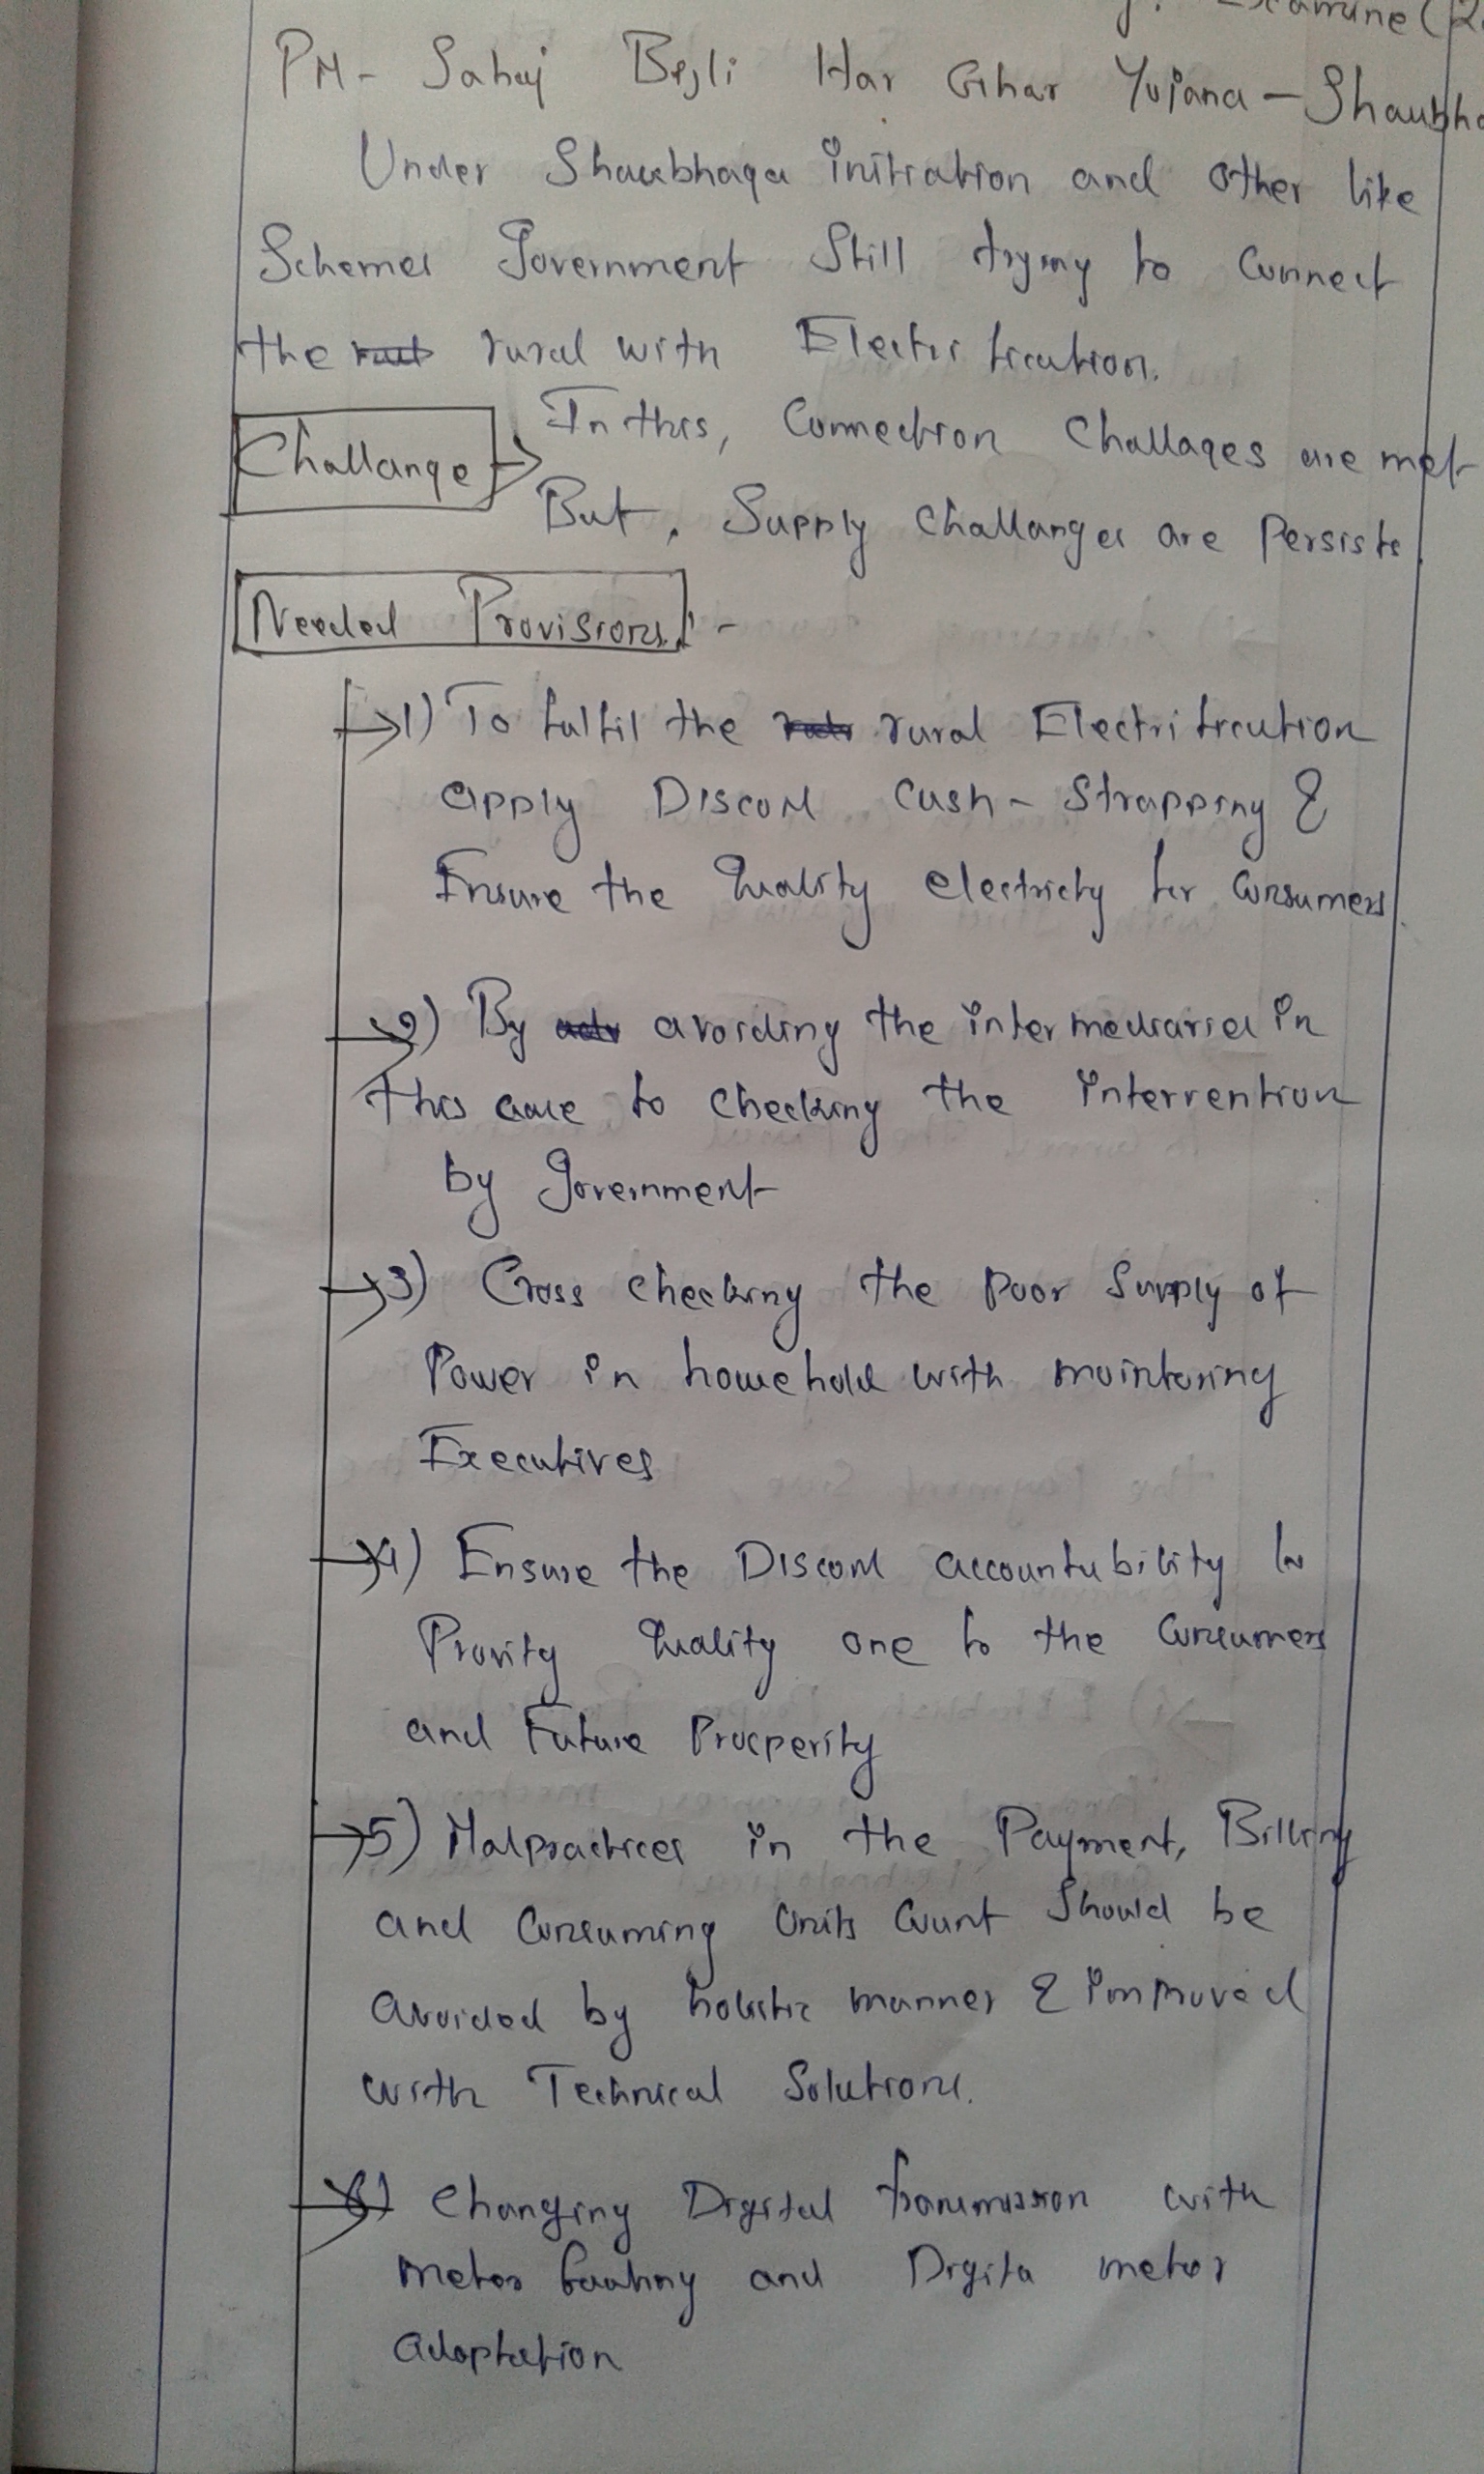 Examine (2
PM- Sahaj Bijli Har Ghar Yojana - Shaubha
Under Shaubhagya initiation and other like
Schemes Government Still trying to Connect
the rural with Electrification.
Challange
In this, Connection Challages are met
But, Supply Challanges are Persists.
Needed Provisions:-
1) To fulfil the rural Electrification
apply DISCOM Cash-Strapping &
Ensure the Quality electricity for Consumers.
2) By avoiding the intermediaries in
this case to checking the intervention
by Government
3) Cross checking the poor Supply of
Power in household with monitoring
Executives
4) Ensure the DISCOM accountability to
Quality one to the Consumers
and Future Prosperity
5) Malpractices in the Payment, Billing
and Consuming Units Count Should be
avoided by holistic manner & improved
with Technical Solutions.
6) Changing Digital transmission with
meter and Digita meter
adoptation